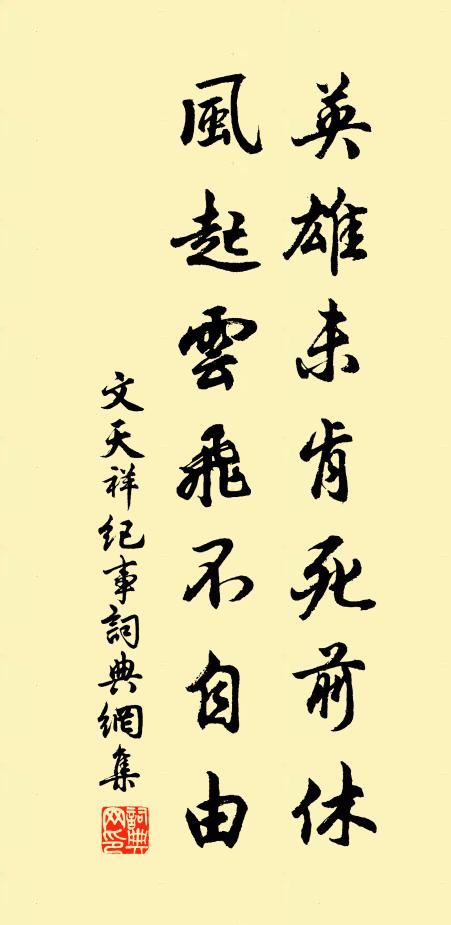 英雄未肯死前休
風起雲飛不自由
文天祥紀事詞典網集
詞典
网印